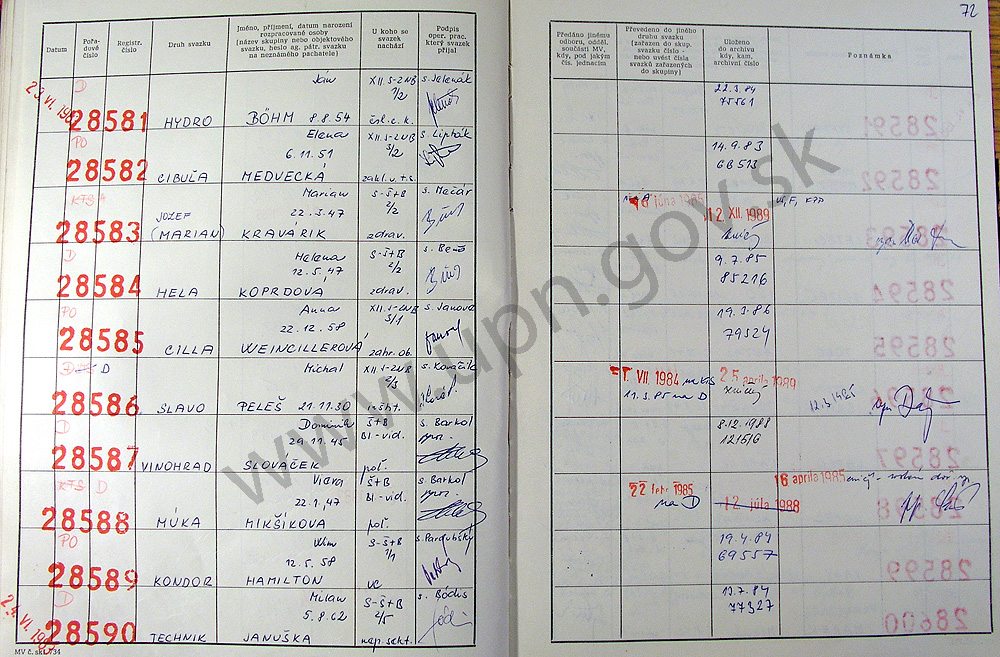 72
Datum
Pořa-
dové
číslo
Registr.
číslo
Druh svazku
Jméno, příjmení, datum narození
rozpracované osoby
(název skupiny nebo objektového
svazku, heslo ag. pátr. svazku
na neznámého pachatele)
U koho se
svazek
nachází
Podpis
oper. prac.
který svazek
přijal
Předáno jinému
odboru, odděl.
součásti MV,
kdy, pod jakým
čís. jednacím
Převedeno do jiného
druhu svazku
(zařazen do skup.
svazku číslo -
nebo uvést čísla
svazků zařazených
do skupiny)
Uloženo
do archivu
kdy, kam,
archivní číslo
Poznámka
23. VI.
D
28581 HYDRO
Jan
BÖHM 8.8.54
XII. S-ZNB
1/2
čsl. c. k.
s. Jelenák
22.3.84
75561
PO
28582 CIBUĽA
Elena
6.11.51
MEDVECKÁ
XII. S-ZNB
3/2
zakl. ú. t. s.
s. Lipták
14.9.83
68513
KTS
28583 JOZEF
(MARIAN)
Marian
22.3.47
KRAVÁRIK
S-Š+B
2/2
zdrav.
s. Mečár
júna 1985
12 XII. 1989
D
28584 HELA
Helena
12.5.47
KOPRDOVÁ
S-Š+B
2/2
zdrav.
s. Beňo
9.7.85
85216
PO
28585 CILLA
Anna
22.12.58
WEINCILLEROVÁ
XII. S-ZNB
3/1
zahr. ob.
s. Janova
19.3.86
79324
D
28586 SLAVO
Michal
PELEŠ 21.11.30
XII. S-ZNB
2/3
s. Kovačik
1. VII. 1984 na KTS
11.3.85 na D
25 apríla 1989
D
28587 VINOHRAD
Dominik
29.11.45
SLOVÁČEK
Š+B
Bl-vid.
poľ.
s. Barkol
8.12.1988
KTS D
28588 MÚKA
Viera
22.1.47
MIKŠÍKOVA
Š+B
Bl-vid.
poľ.
s. Barkol
22 febr 1985
na D
16 apríla 1985
12 júla 1988
PO
28589 KONDOR
12.5.58
HAMILTON
S-Š+B
1/1
s. Pardubský
19.4.84
69557
24. VI.
D
28590 TECHNIK
Milan
5.8.62
JANUŠKA
S-Š+B
2/5
nep. sekt.
s. Bódis
13.7.84
77327
MV č. skl. 734
www.upn.gov.sk